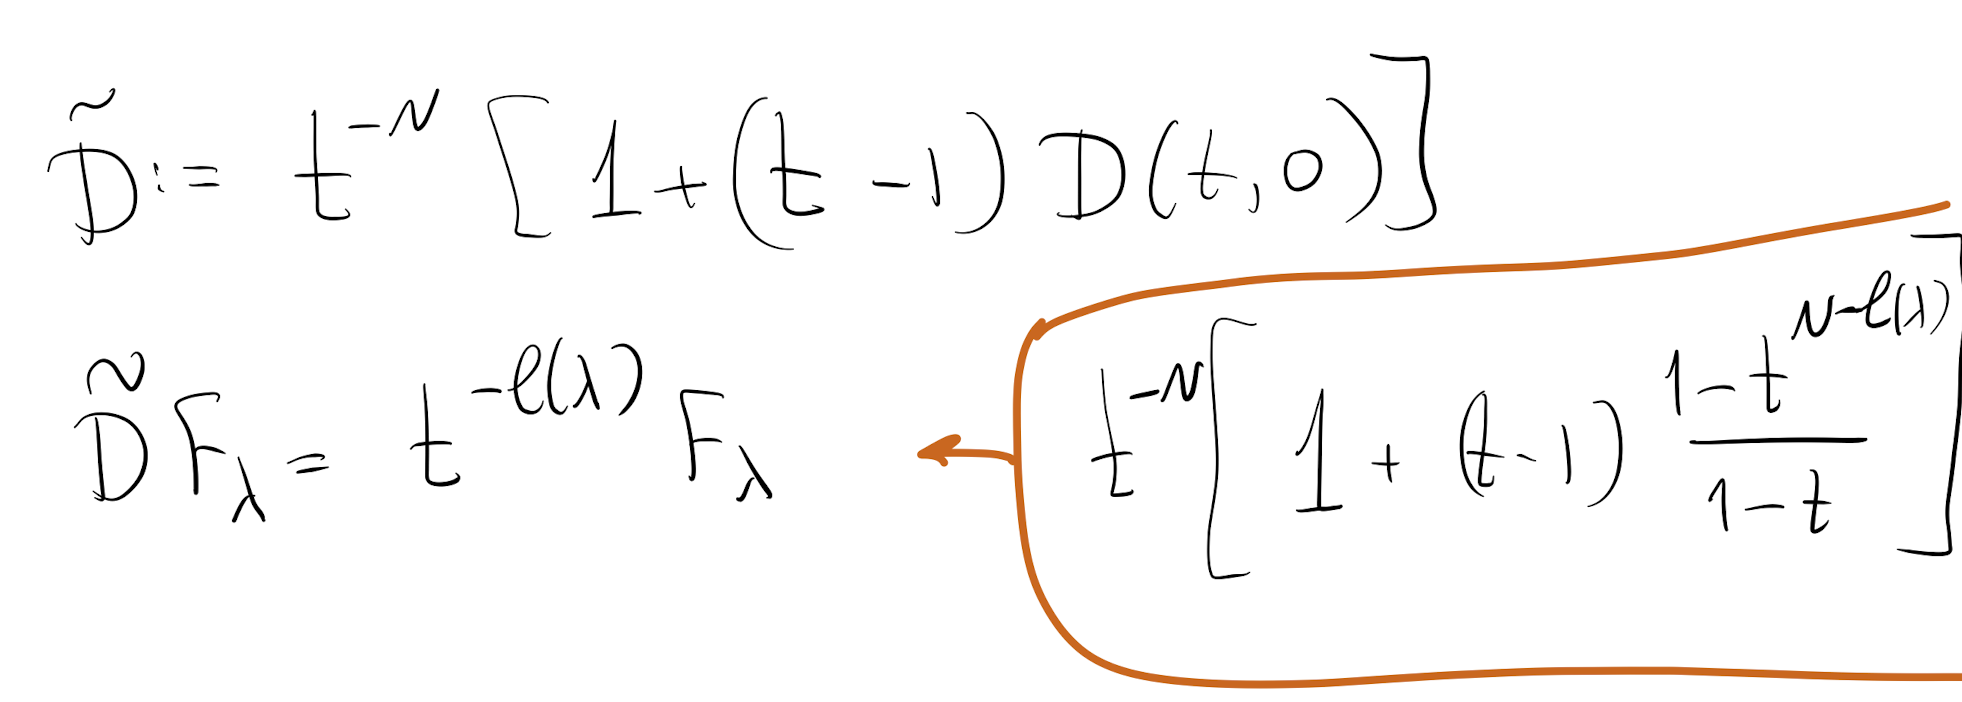 D̃ := t^{-N} [1 + (t - 1) D(t, 0)]
D̃ F_λ = t^{-ℓ(λ)} F_λ ← t^{-N} [1 + (t - 1) \frac{1 - t^{N - ℓ(λ)}}{1 - t}]